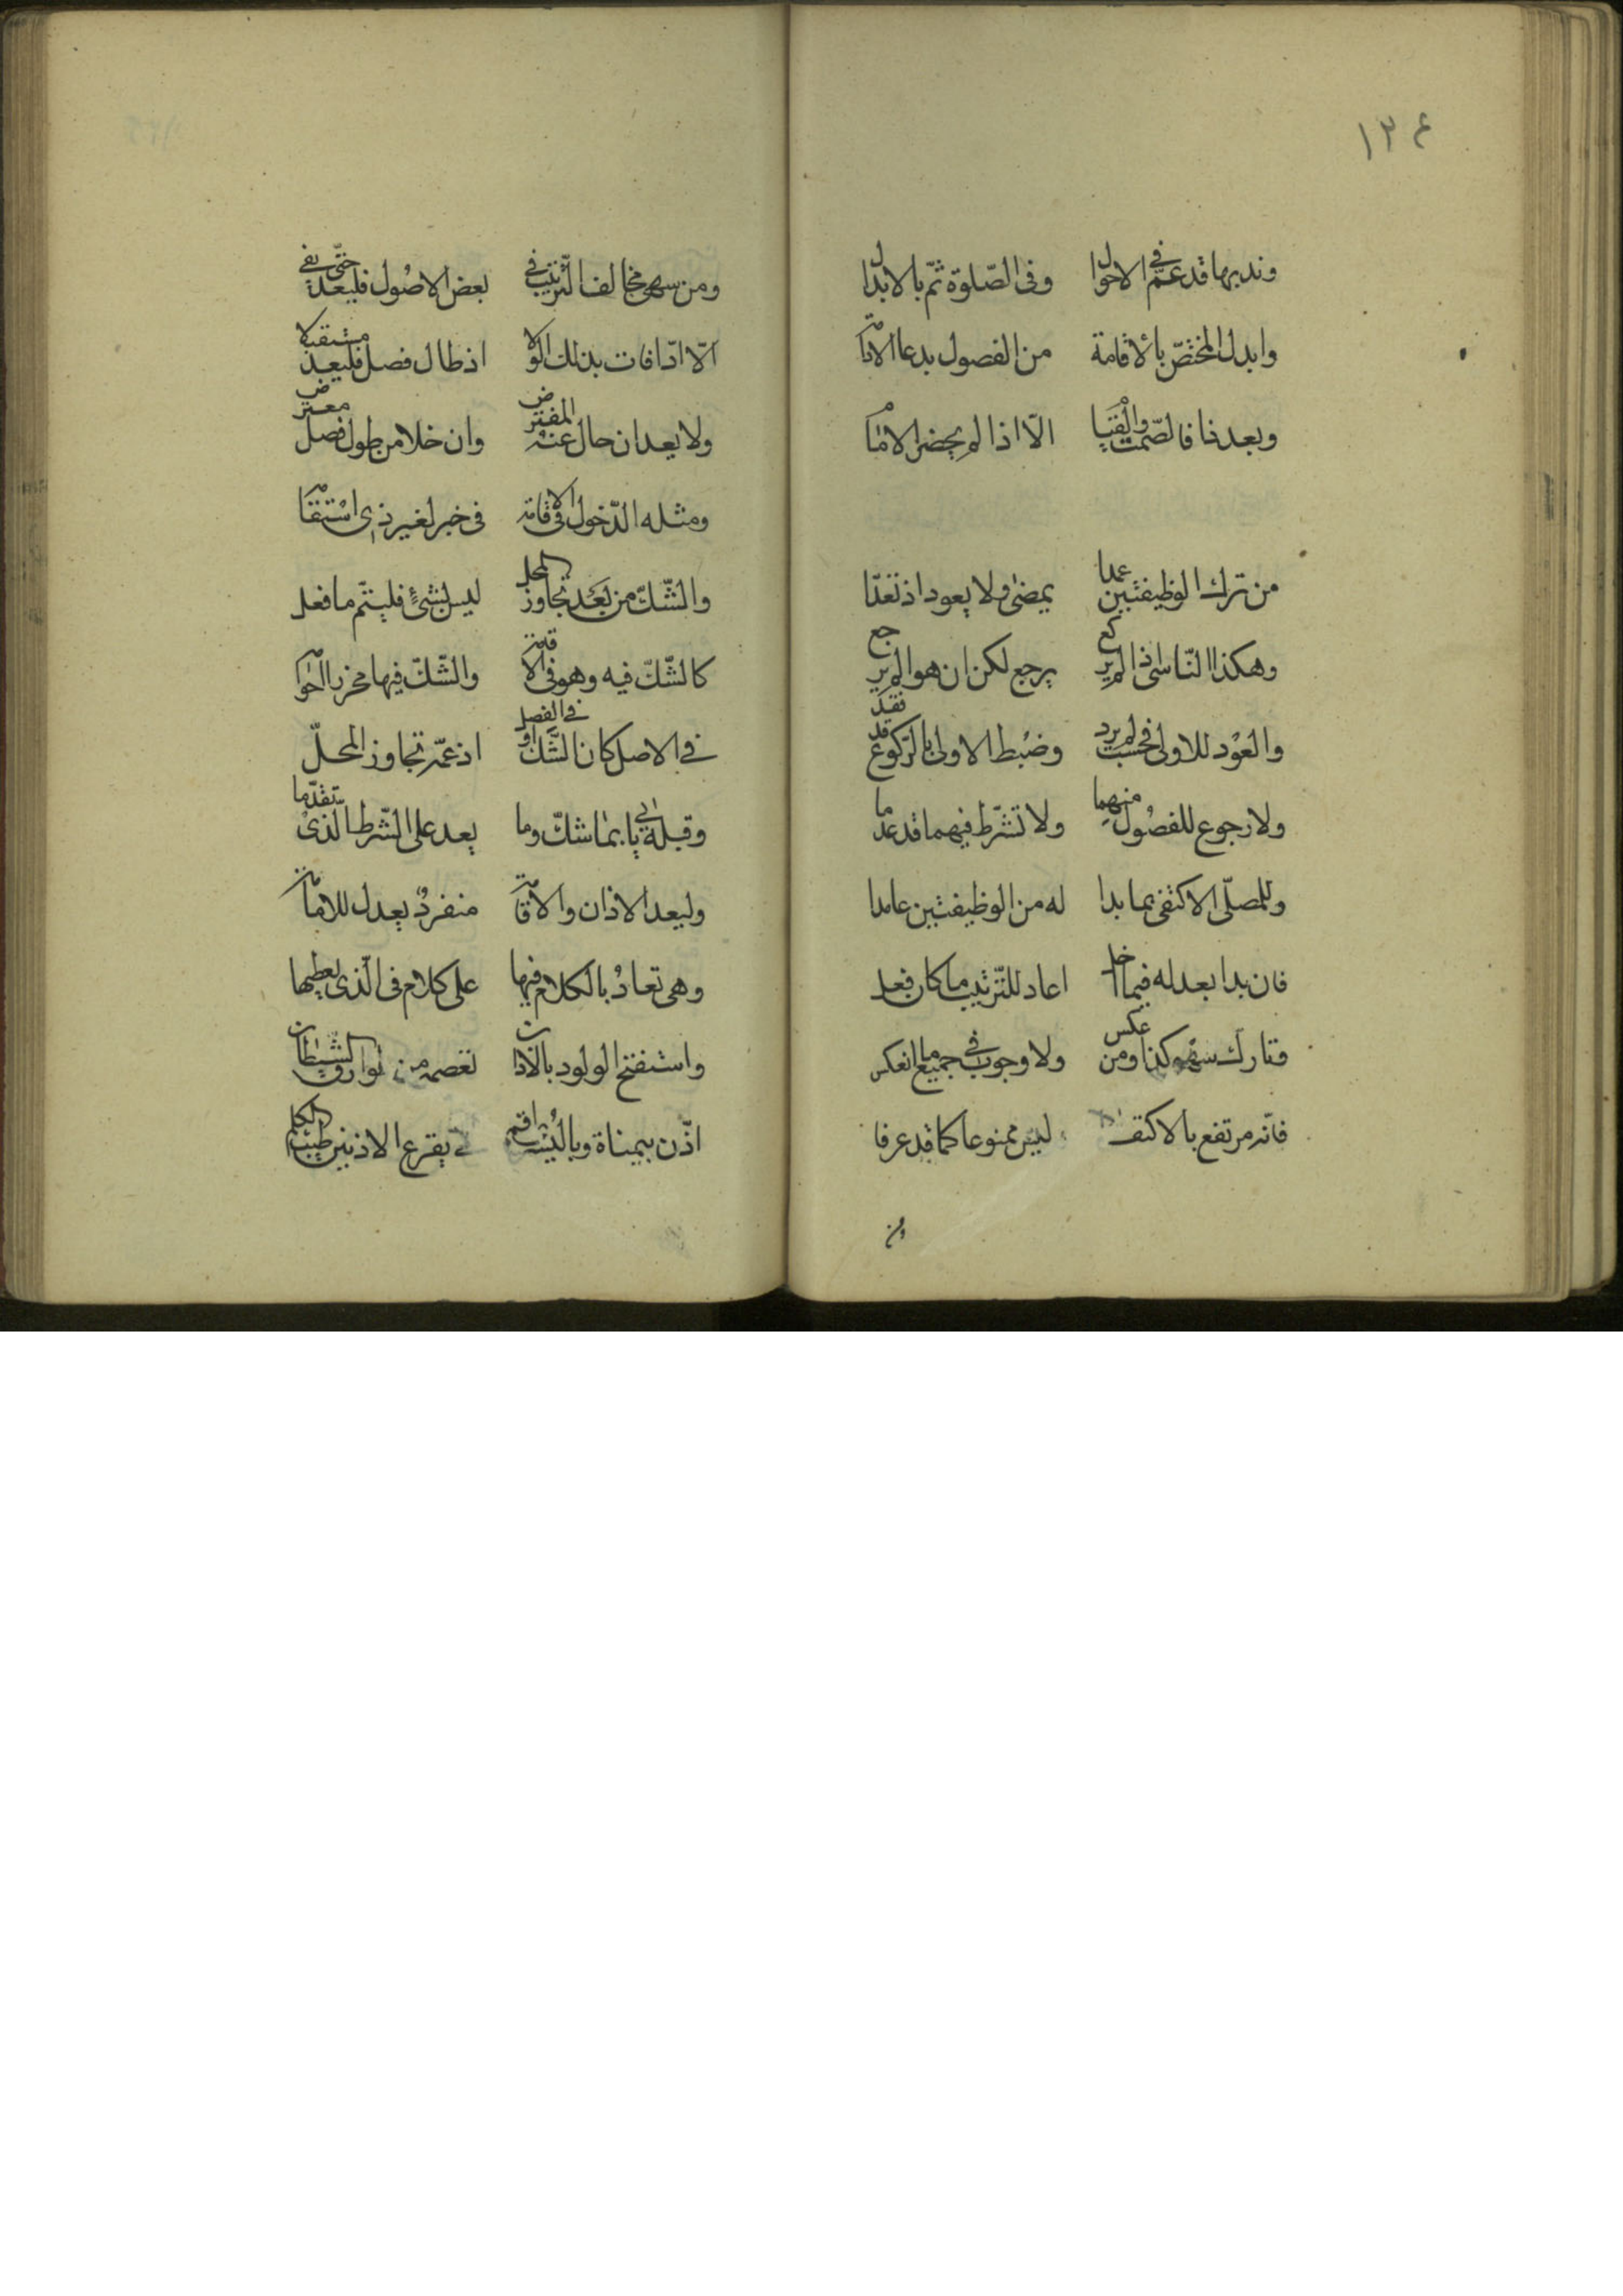 ١٣٤
وندبها قد عمّ في الاحوال وفى الصّلوة ثمّ بالابدال
وابدل المختصّ بالاقامة من الفصول بدعا الاقامة
وبعدنا فالصّمت والقيام الّا اذا لم يحضر الامام
من ترك الوظيفتين عمدا يمضى ولا يعود اذ تعدّا
وهكذا النّاسى اذا لم يركع يرجع لكن ان هو لم يرجع
والعود للاولى فحسب لم يرد وضبط الاولى بالركوع قد فقد
ولا رجوع للفصول منهما ولا تشّرط فيهما قد عدما
وللمصلّى الاكتفى بما بدا له من الوظيفتين عامدا
فان بدا بعد له فيما خل اعاد للتّرتيب ما كان فعل
وتارك سهو كذا ومن عكس ولا وجوب فى جميع ما انعكس
فانّه مرتفع بالاكتفا ليس ممنوعا كما قد عرفا
ومن
ومن سهى مخالف التّرتيب فى بعض الاصول فليعد حتّى يفى
الّا اذا فات بذلك الولا اذ طال فصل فليعد مستقبلا
ولا يعد ان حال عنه المفترض وان خلا من طول فصل معترض
ومثله الدّخول فى الاقامة فى خبر لغير ذى استقامة
والشّكّ من بعد تجاوز المحل ليس بشئ فليتمّ ما فعل
كالشّكّ فيه وهو فى الاقامة والشّكّ فيها محرز
فى الاصل كان الشّكّ او فى الفصل اذ عمّ تجاوز المحلّ
وقبله ياتى بما شكّ وما بعد على الشّرط الّذى تقدّما
وليعد الاذان والاقامة منفرد يعدل للامامة
وهى تعاد بالكلام فيها على كلام فى الّذى يعطيها
واستفتح الولود بالاذان تعصمه من طوارق الشّيطان
اذّن بيمناه وباليسرى اقم يقرع الاذنين طيّب الكلم